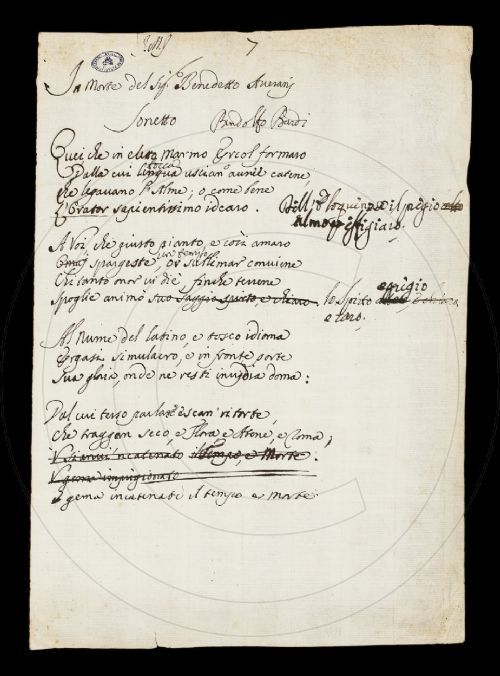 7
In Morte del Sig.r Benedetto Averani
Sonetto Bindolfo Bardi
Quei che in eletto Marmo Ercol formaro
bocca
Dalla cui lingua uscian auree catene,
che legavano l'Alme; o come bene
L'Orator sapientissimo idearo.
A Voi, che giusto pianto, e così amaro
un tempo
spargeste, or sull mar conviene
Chi tanto onor vi diè finche terrene
Spoglie animò suo saggio spirto e chiaro. lo Spirto egregio
e caro.
Al Nume del latino, e tosco idioma
Ergasi simulacro, e in fronte porte
Sua gloria, onde ne resti invidia doma:
Dal cui terso parlar escan ritorte,
che traggan seco, e Flora e Atene, e Roma,
il Tempo, e Morte.
e gema incatenati il tempo e morte.